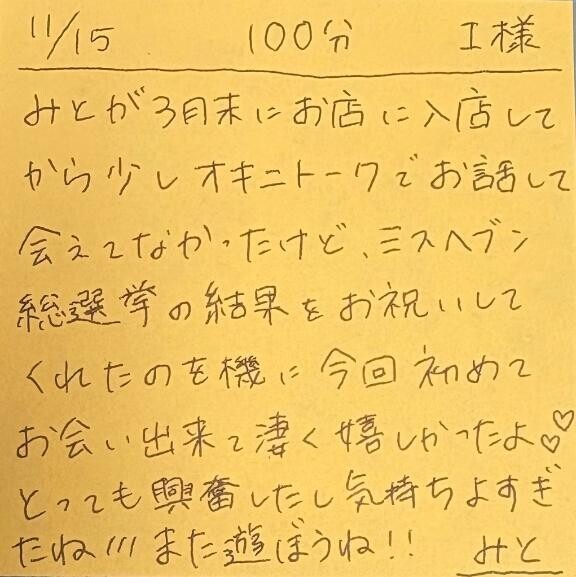 11/15 100分 I様
みとが3月末にお店に入店して
から少しオキニトークでお話して
会えてなかったけど、ミスヘブン
総選挙の結果をお祝いして
くれたのを機に今回初めて
お会い出来て凄く嬉しかったよ♡♡
とっても興奮したし気持ちよすぎ
たね!!!また遊ぼうね!! みと